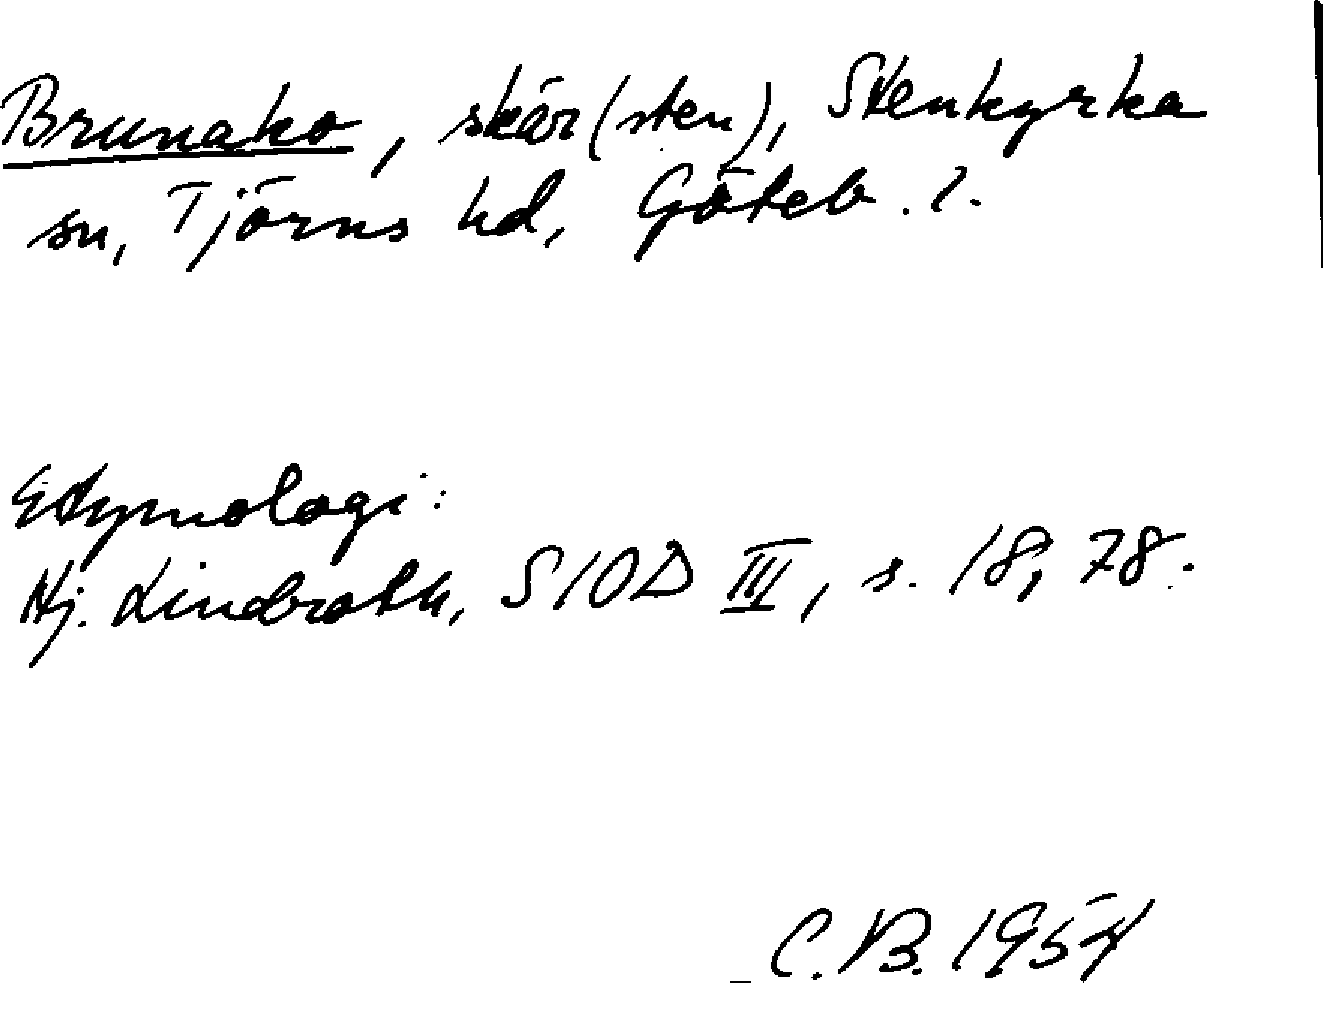 Brunako, skär (sten), Stenkyrka
sn, Tjörns hd, Göteb. l.
Etymologi:
Hj. Lindroth, SIOD III, s. 18, 78.
C.B. 1954